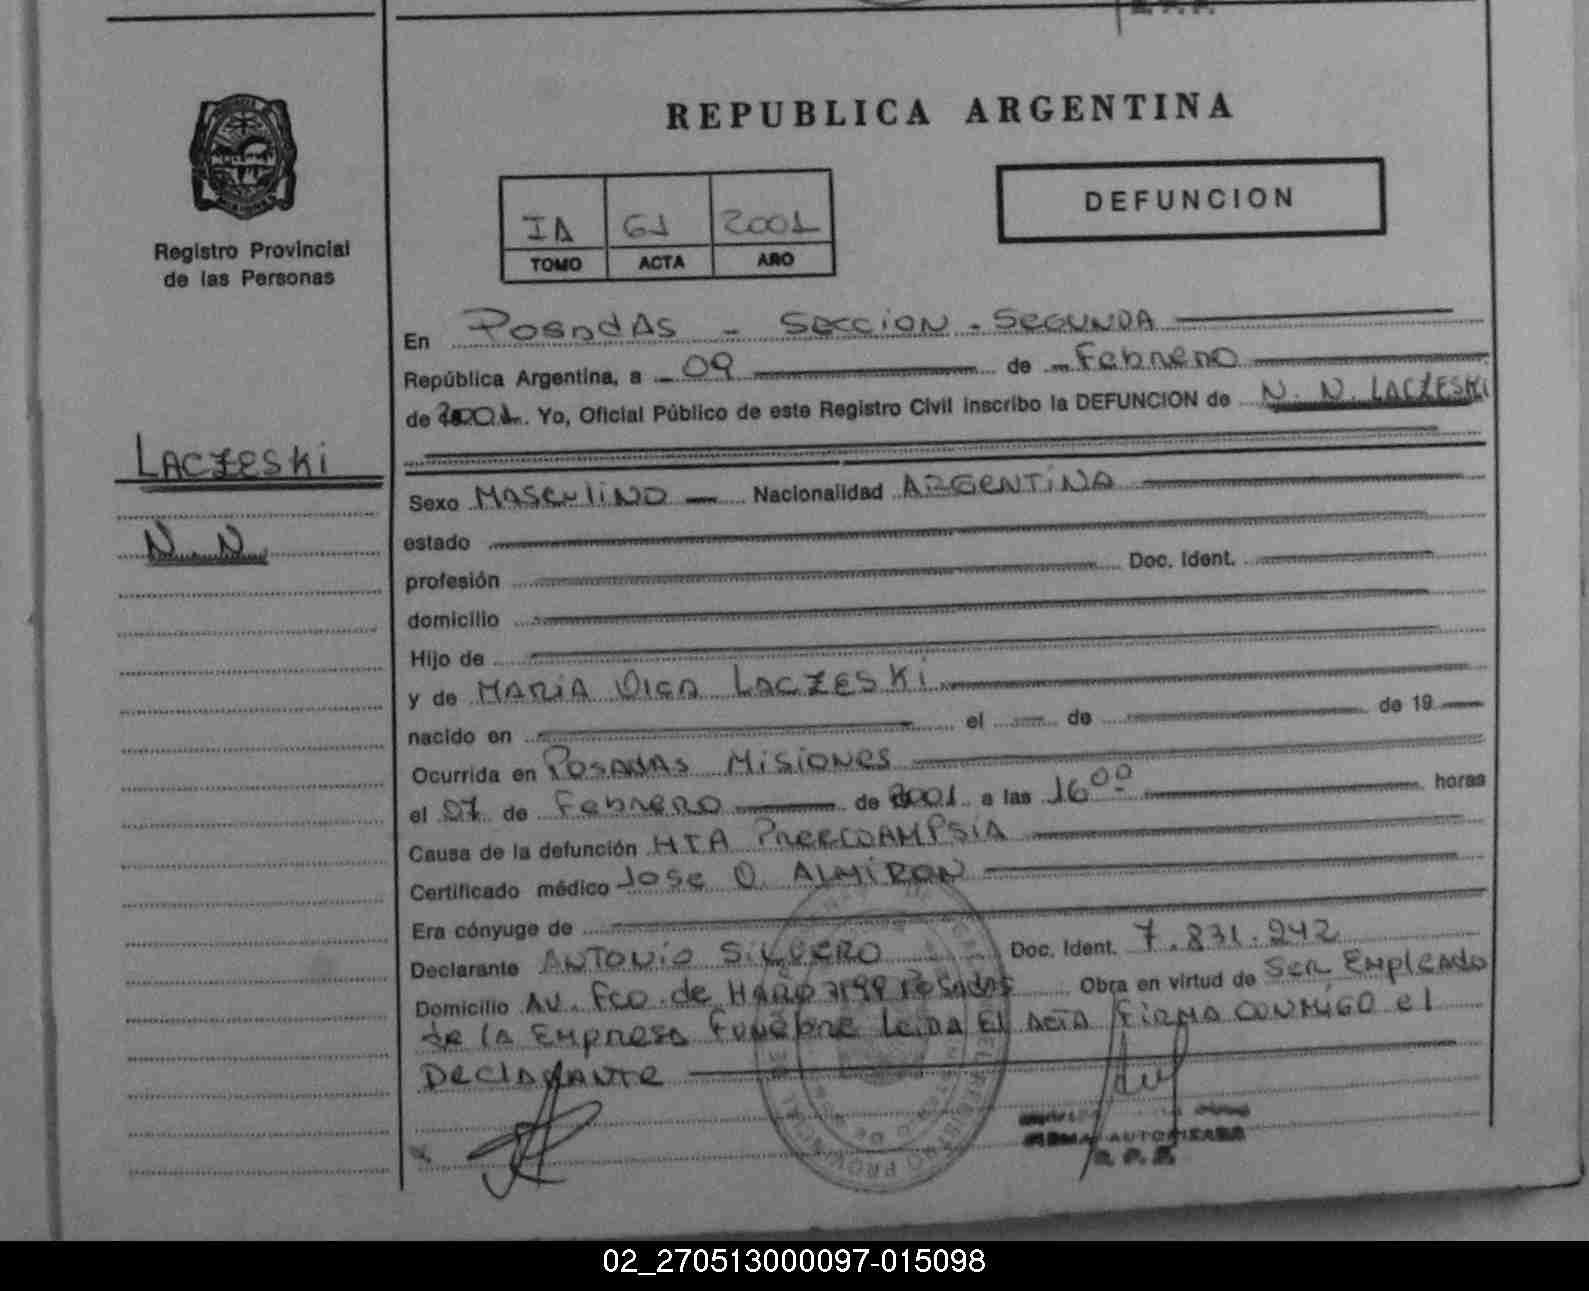 REPUBLICA ARGENTINA
DEFUNCION
IA 61 2001
TOMO ACTA AÑO
Registro Provincial
de las Personas
LACZESKi
N. N.
En POSADAS - SECCION - SEGUNDA
República Argentina, a 09 de Febrero
de 2001. Yo, Oficial Público de este Registro Civil inscribo la DEFUNCION de N. N. LACZESKi
Sexo MASCULINO Nacionalidad ARGENTINA
estado
profesión Doc. Ident.
domicilio
Hijo de
y de MARIA OLGA LACZESKi
nacido en el de de 19
Ocurrida en POSADAS MISIONES
el 07 de Febrero de 2001 a las 16 00 horas
Causa de la defunción HTA PREECLAMPSIA
Certificado médico JOSE O. ALMIRON
Era cónyuge de
Declarante ANTONIO SILVERO Doc. Ident. 7.831.242
Domicilio AV. FCO. de HARO 7199 POSADAS Obra en virtud de SER EMPLEADO
de la EMPRESA FUNEBRE LEIDA EL ACTA FIRMA CONMIGO el
DECLARANTE
FIRMA AUTORIZADA
R. P. P.
02_270513000097-015098